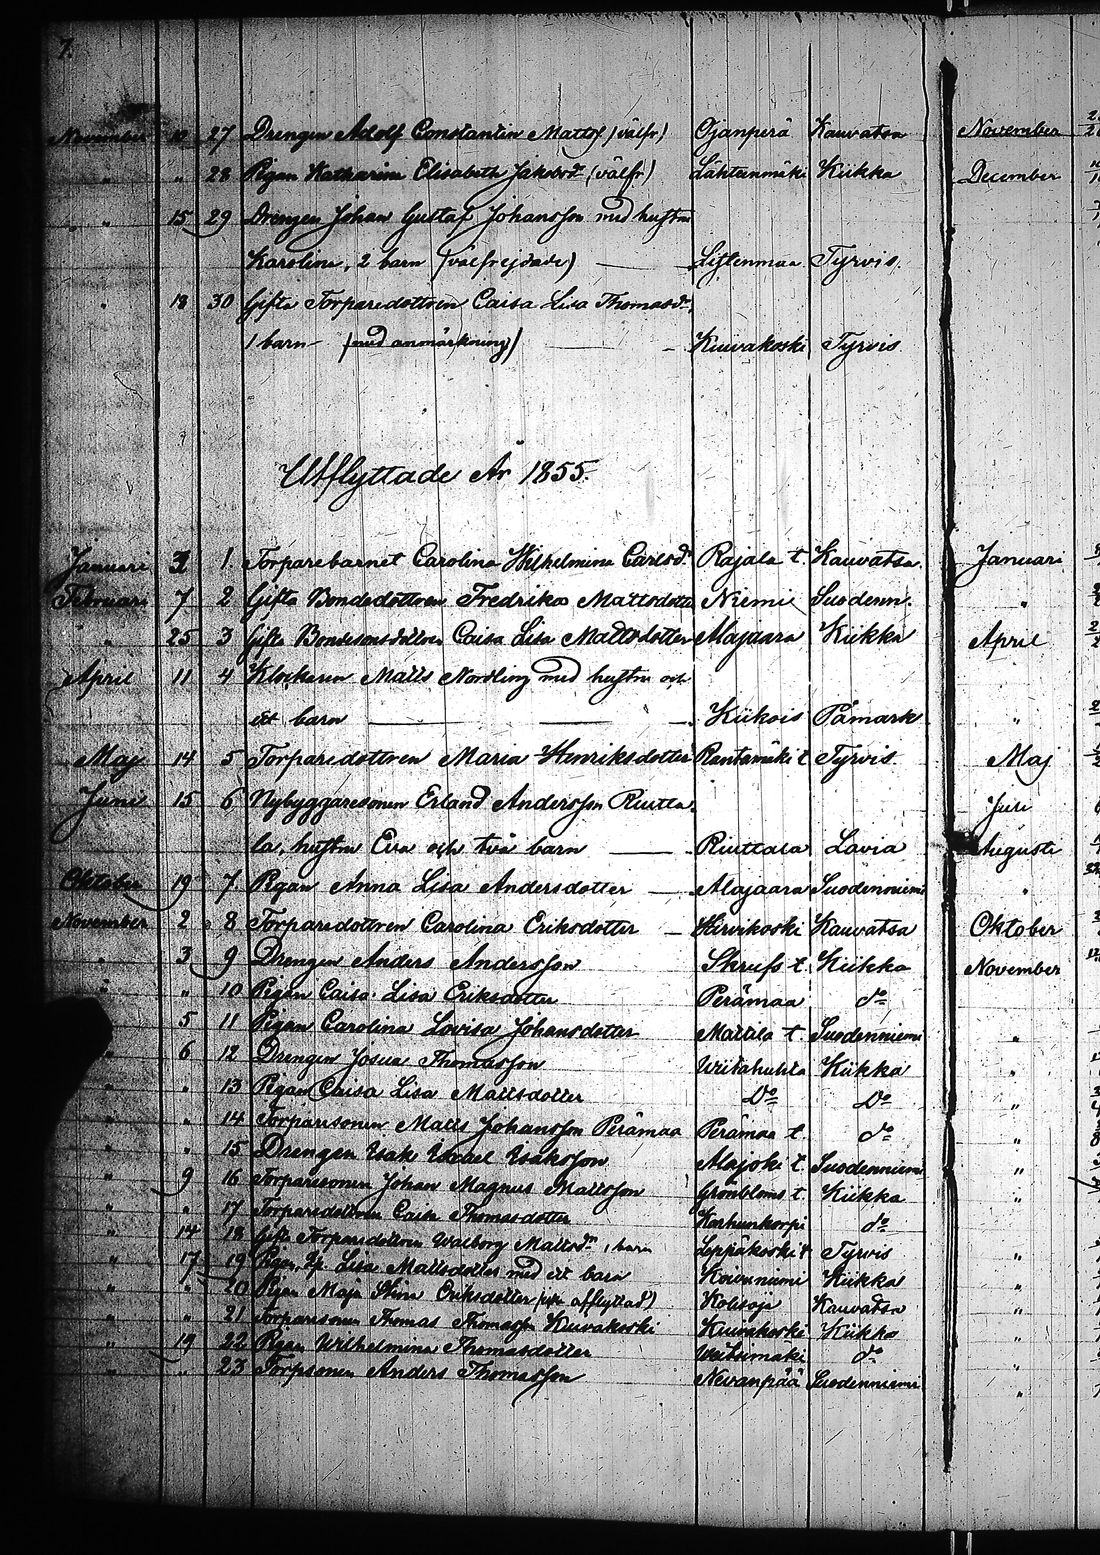 7.
November 12 27 Drengen Adolf Constantin Mattss (välfr) Ojanperä Kauvatsa November
" " 28 Pigan Katharina Elisabeth Jakobsdr (välfr) Lähteenmäki Kiikka December
" " 15 29 Drengen Johan Gustaf Johansson med hustru
Karolina, 2 barn (välfrejdade) Tyrvis.
" 18 30 Gifta Torparedottren Caisa Lisa Thomasdr,
1 barn (med anmärkning) Kuivakoski Tyrvis
Utflyttade År 1855.
Januari 1 Torparebarnet Carolina Wilhelmina Carlsdr Rajala t. Kauvatsa Januari
Februari 7 2 Gifta Bondedottren Fredrika Mattsdotter Niemi Suodenn. "
" 25 3 Gifta Bondesonsdottren Caisa Lisa Mattsdotter Alajaara Kiikka April
April 11 4 Klockaren Matts Nordling med hustru och
ett barn Kiikois Påmark "
Maj 14 5 Torparedottren Maria Henriksdotter Rantamäki t Tyrvis Maj
Juni 15 6 Nybyggaresonen Erland Andersson Riutta- Juli
la, hustru Eva och två barn Riuttala Lavia Augusti
Oktober 19 7 Pigan Anna Lisa Andersdotter Alajaara Suodenniemi "
November 2 8 Torparedottren Carolina Eriksdotter Hirvikoski Kauvatsa Oktober
" 3 9 Drengen Anders Andersson Skrufs t. Kiikka November
" " 10 Pigan Caisa Lisa Eriksdotter Perämaa do
" 5 11 Pigan Carolina Lovisa Johansdotter Mattila t. Suodenniemi "
" 6 12 Drengen Josua Thomasson Kiikka "
" " 13 Pigan Caisa Lisa Mattsdotter Do Do "
" " 14 Torparesonen Matts Johansson Perämaa Perämaa t. do "
" " 15 Drengen Isak Israel Isaksson Alajoki t. Suodenniemi "
" 9 16 Torparesonen Johan Magnus Mattsson Grönbloms t. Kiikka "
" " 17 Torparedottren Caisa Thomasdotter Karhunkorpi do
" 14 18 Gifta Torparedottren Walborg Mattsdr 1 barn Leppäkoski t Tyrvis "
" 17 19 Pigan Lisa Mattsdotter med ett barn Koivuniemi Kiikka "
" " 20 Pigan Maja Stina Eriksdotter afflyttad) Kauvatsa "
" " 21 Torparesonen Thomas Thomasson Kuivakoski Kuivakoski Kiikka "
" 19 22 Pigan Wilhelmina Thomasdotter do "
" " 23 Torpsonen Anders Thomasson Nevanpää Suodenniemi "